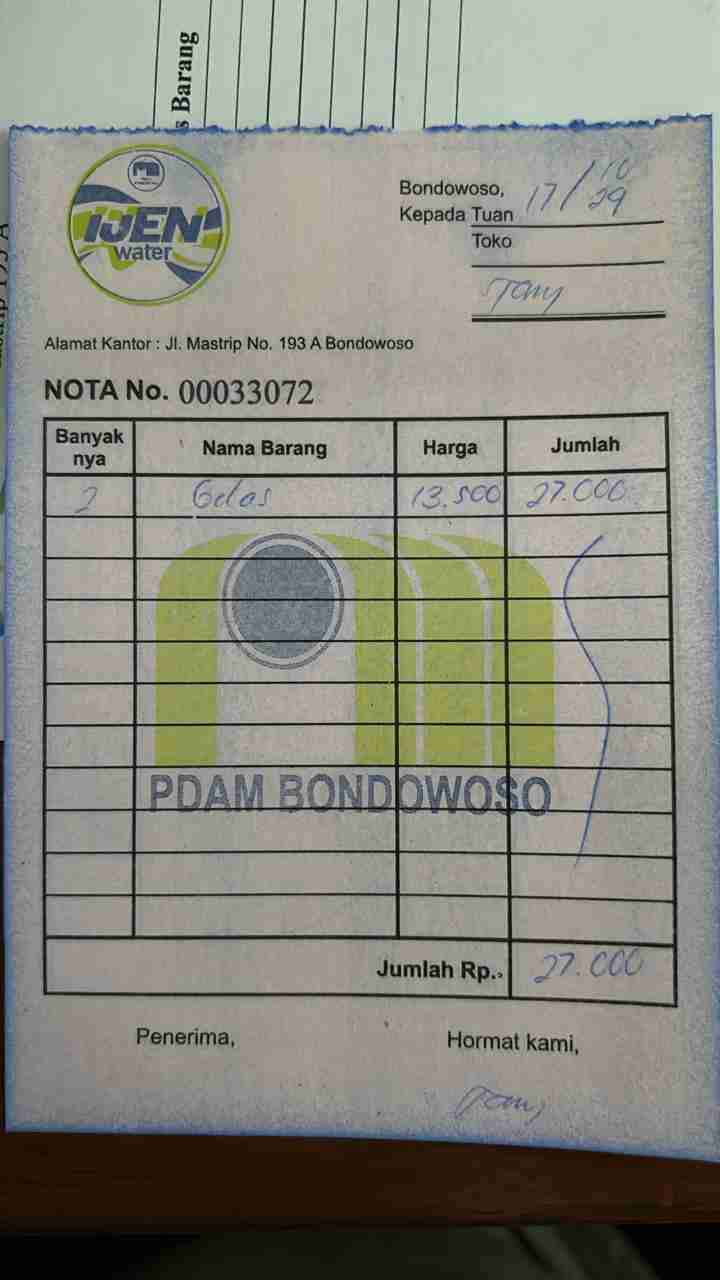 s Barang
IJEN
water
Bondowoso, 17/10
29
Kepada Tuan
Toko
Tony
Alamat Kantor : Jl. Mastrip No. 193 A Bondowoso
NOTA No. 00033072
Banyak nya Nama Barang Harga Jumlah
2 Gelas 13.500 27.000
PDAM BONDOWOSO
Jumlah Rp. 27.000
Penerima, Hormat kami,
Tony